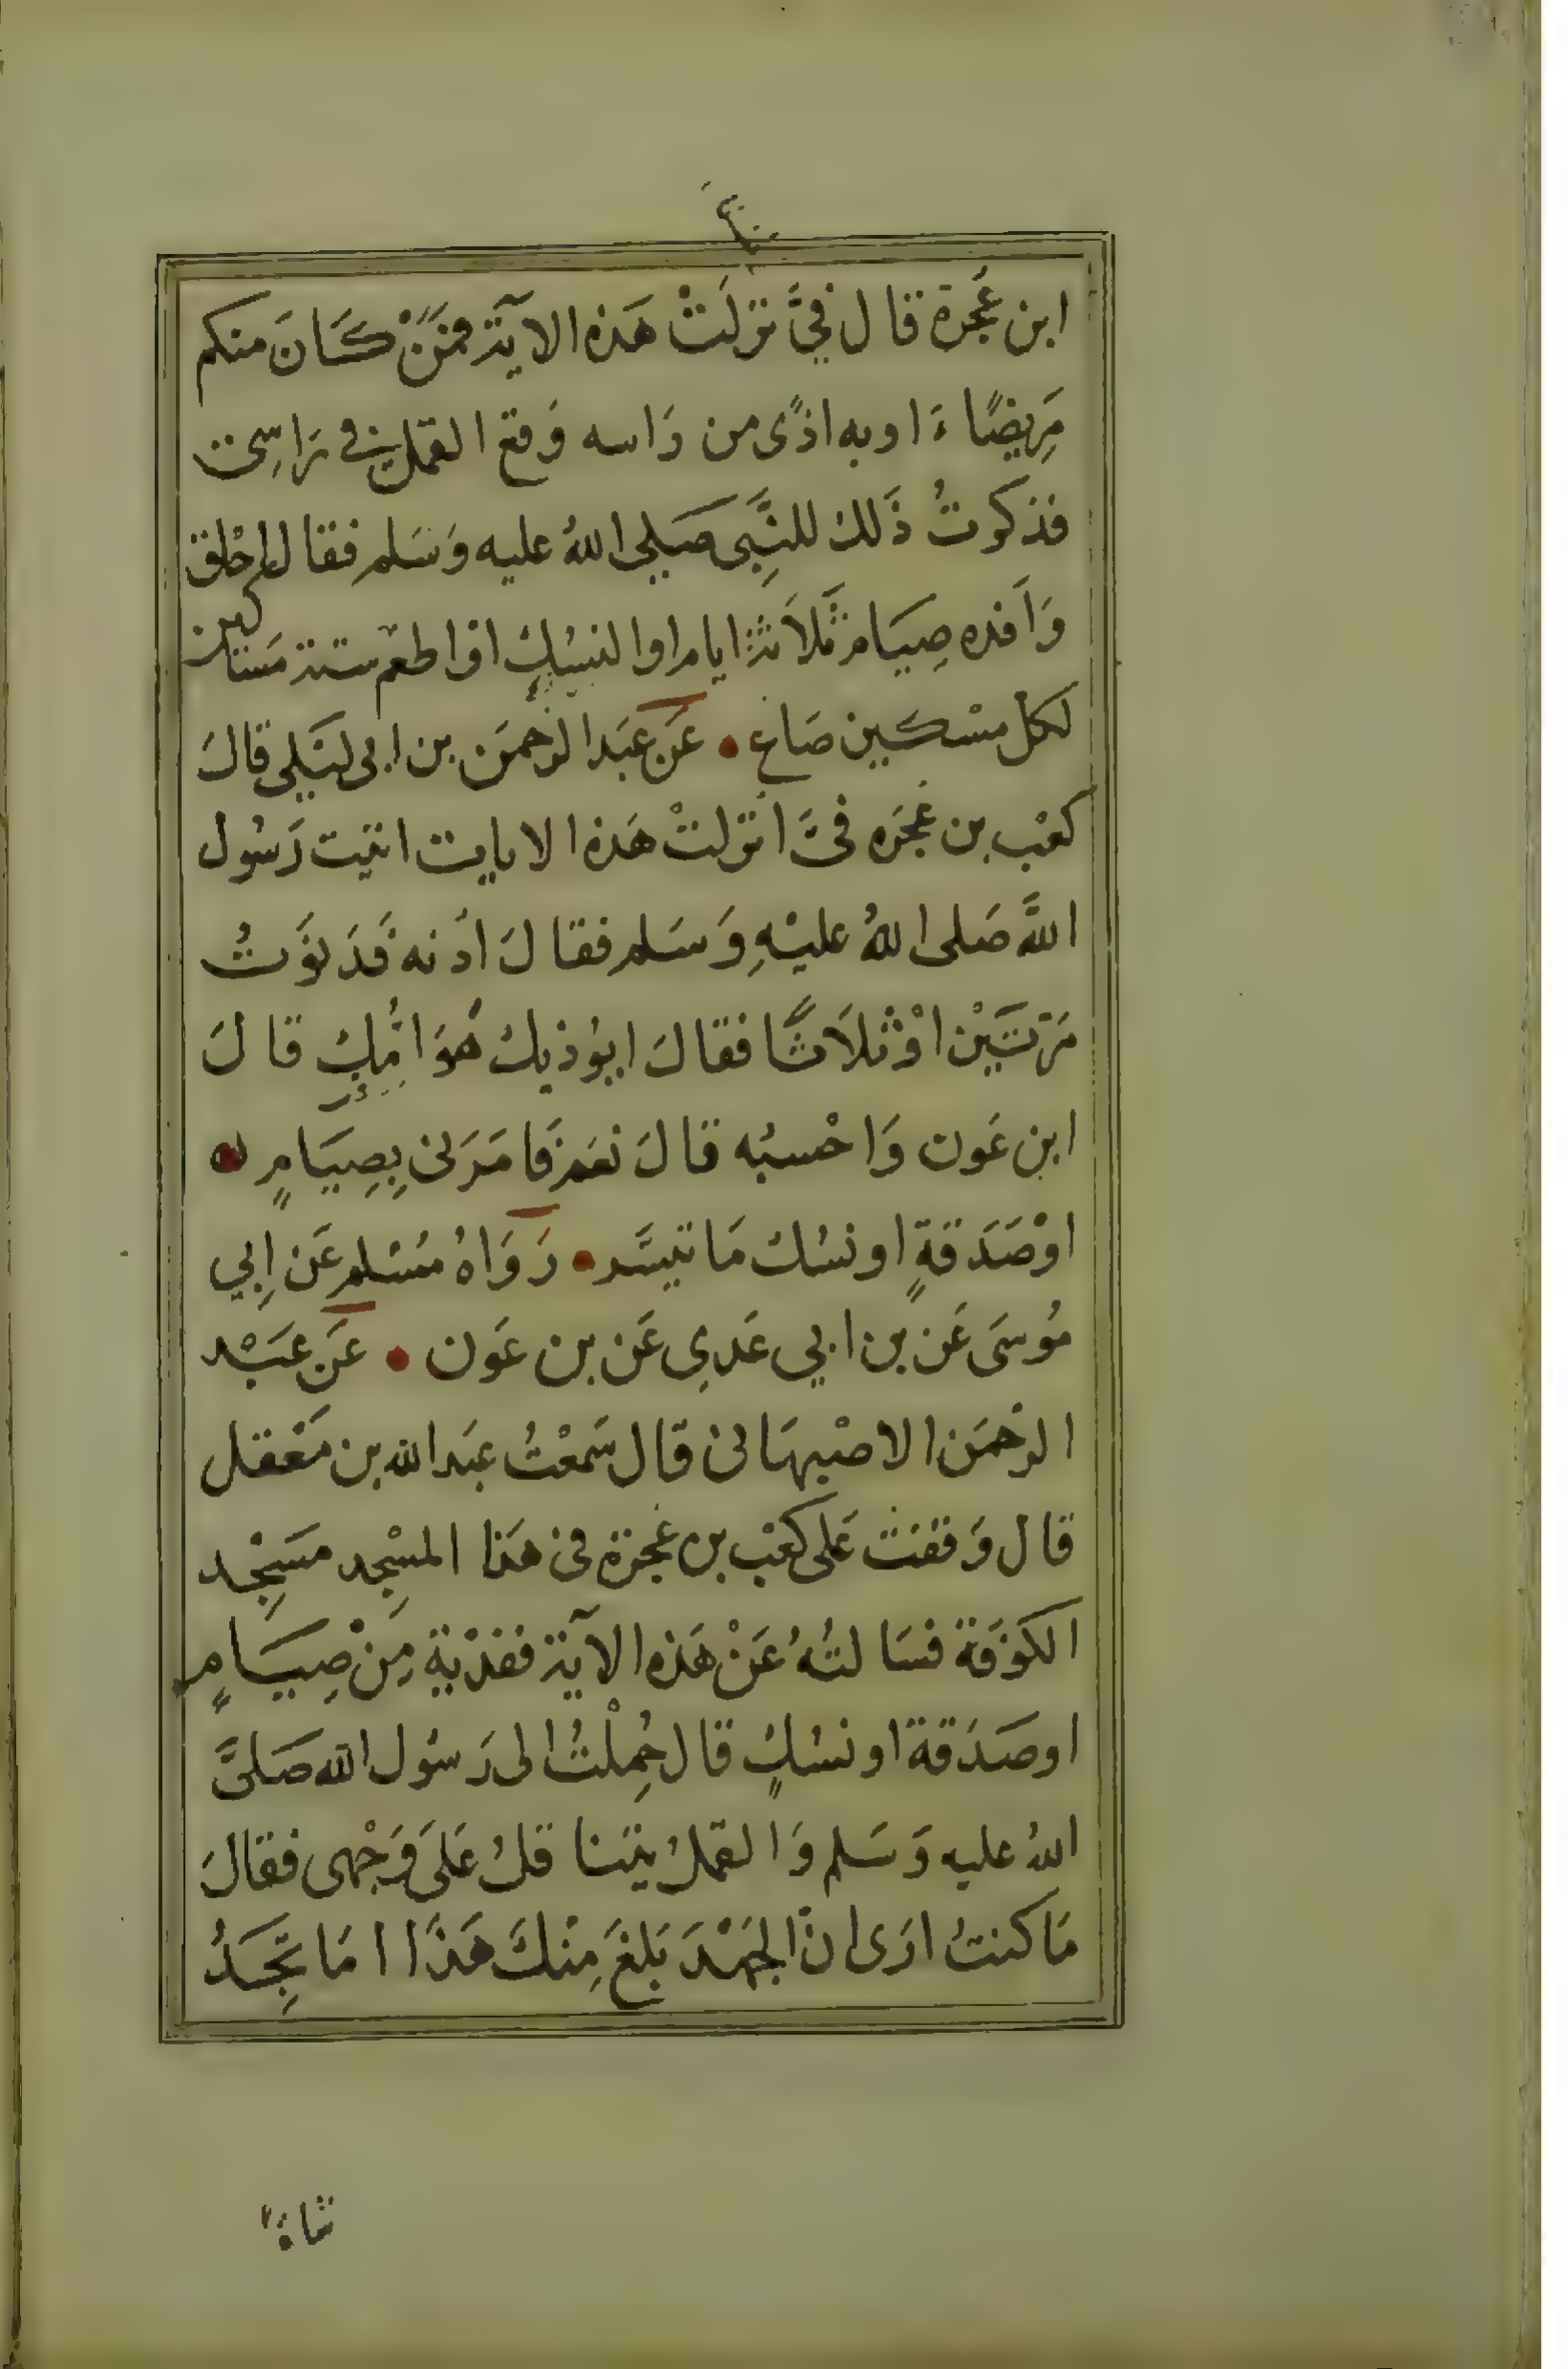 ابن عُجرة قال فيَّ نزلَتْ هَذه الآية فمَنْ كَانَ منكم
مَرِيضًا ءَ اوبه اذًى من رَاسه وَقع القمل في رَاسِى
فذكرتُ ذَلك للنَّبِى صَلي اللهُ عليه وَسَلم فقال احْلق
وَاَفده صِيَام ثَلاَثة ايام او النسُكٍ اوْ اطعم ستة مَسَاكين
لكل مسْكين صَاع • عَن عَبَد الرَّحمَن بن ابى لَيَلى قالَ
كعْب بن عُجَره فىَّ انزلتْ هَذه الايايت اتيت رَسُول
اللَّه صَلى اللهُ عليْهِ وَسَلم فقالَ ادُنه فَدَنوَتُ
مَرَّتَيْن اوْثلاَثًا فقالَ ايوُذيكَ هَوَامُّكِ قالَ
ابن عَون وَاحْسبُه قالَ نعَم فَامَرَنى بِصِيَامٍ •
اوْصَدَقةٍ او نسُك مَا تيسَّر • رَوَاهُ مُسْلم عَن ابي
مُوسَى عَن بن ابي عَدي عَن بن عَون • عَن عَبْد
الرَّحمَن الاصْبهَانى قال سَمعْتُ عبَد الله بن مَعْقل
قال وَقفتُ عَلى كعْب بن عُجرَة فى هَذا المسْجِد مَسَجِد
الكوُفَة فسَالتُهُ عَنْ هَذه الآية ففدْيَة مِنْ صِيَامٍ
او صَدَقة او نسُكٍ قال حُمِلْتُ الى رَسُول الله صَلىَّ
اللهُ عليه وَسَلم وَالقملُ يتنا قلُ عَلىَ وَجْهى فقالَ
مَا كنتُ ارَى انَّ الجَهْدَ بَلغَ مِنْكَ هَذَا امَا تَجِدُ
شاةً